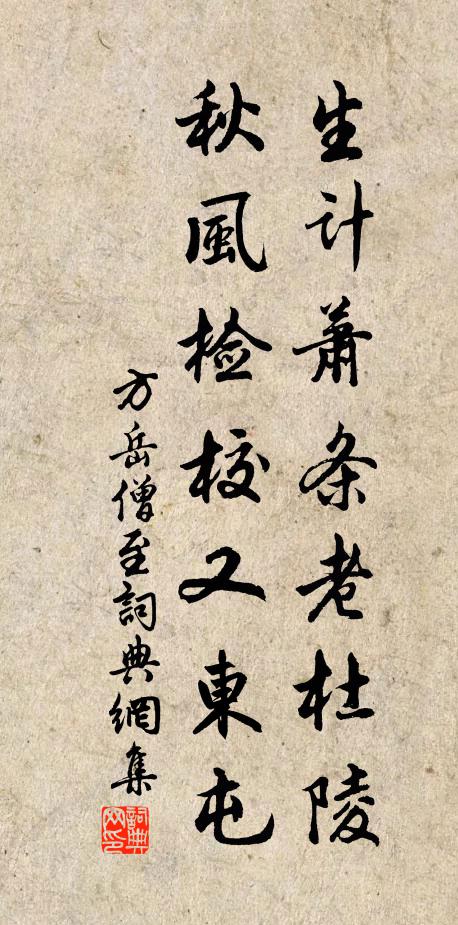 生计萧条老杜陵
秋風检校又東屯
方岳僧至詞典網集
詞典
网印